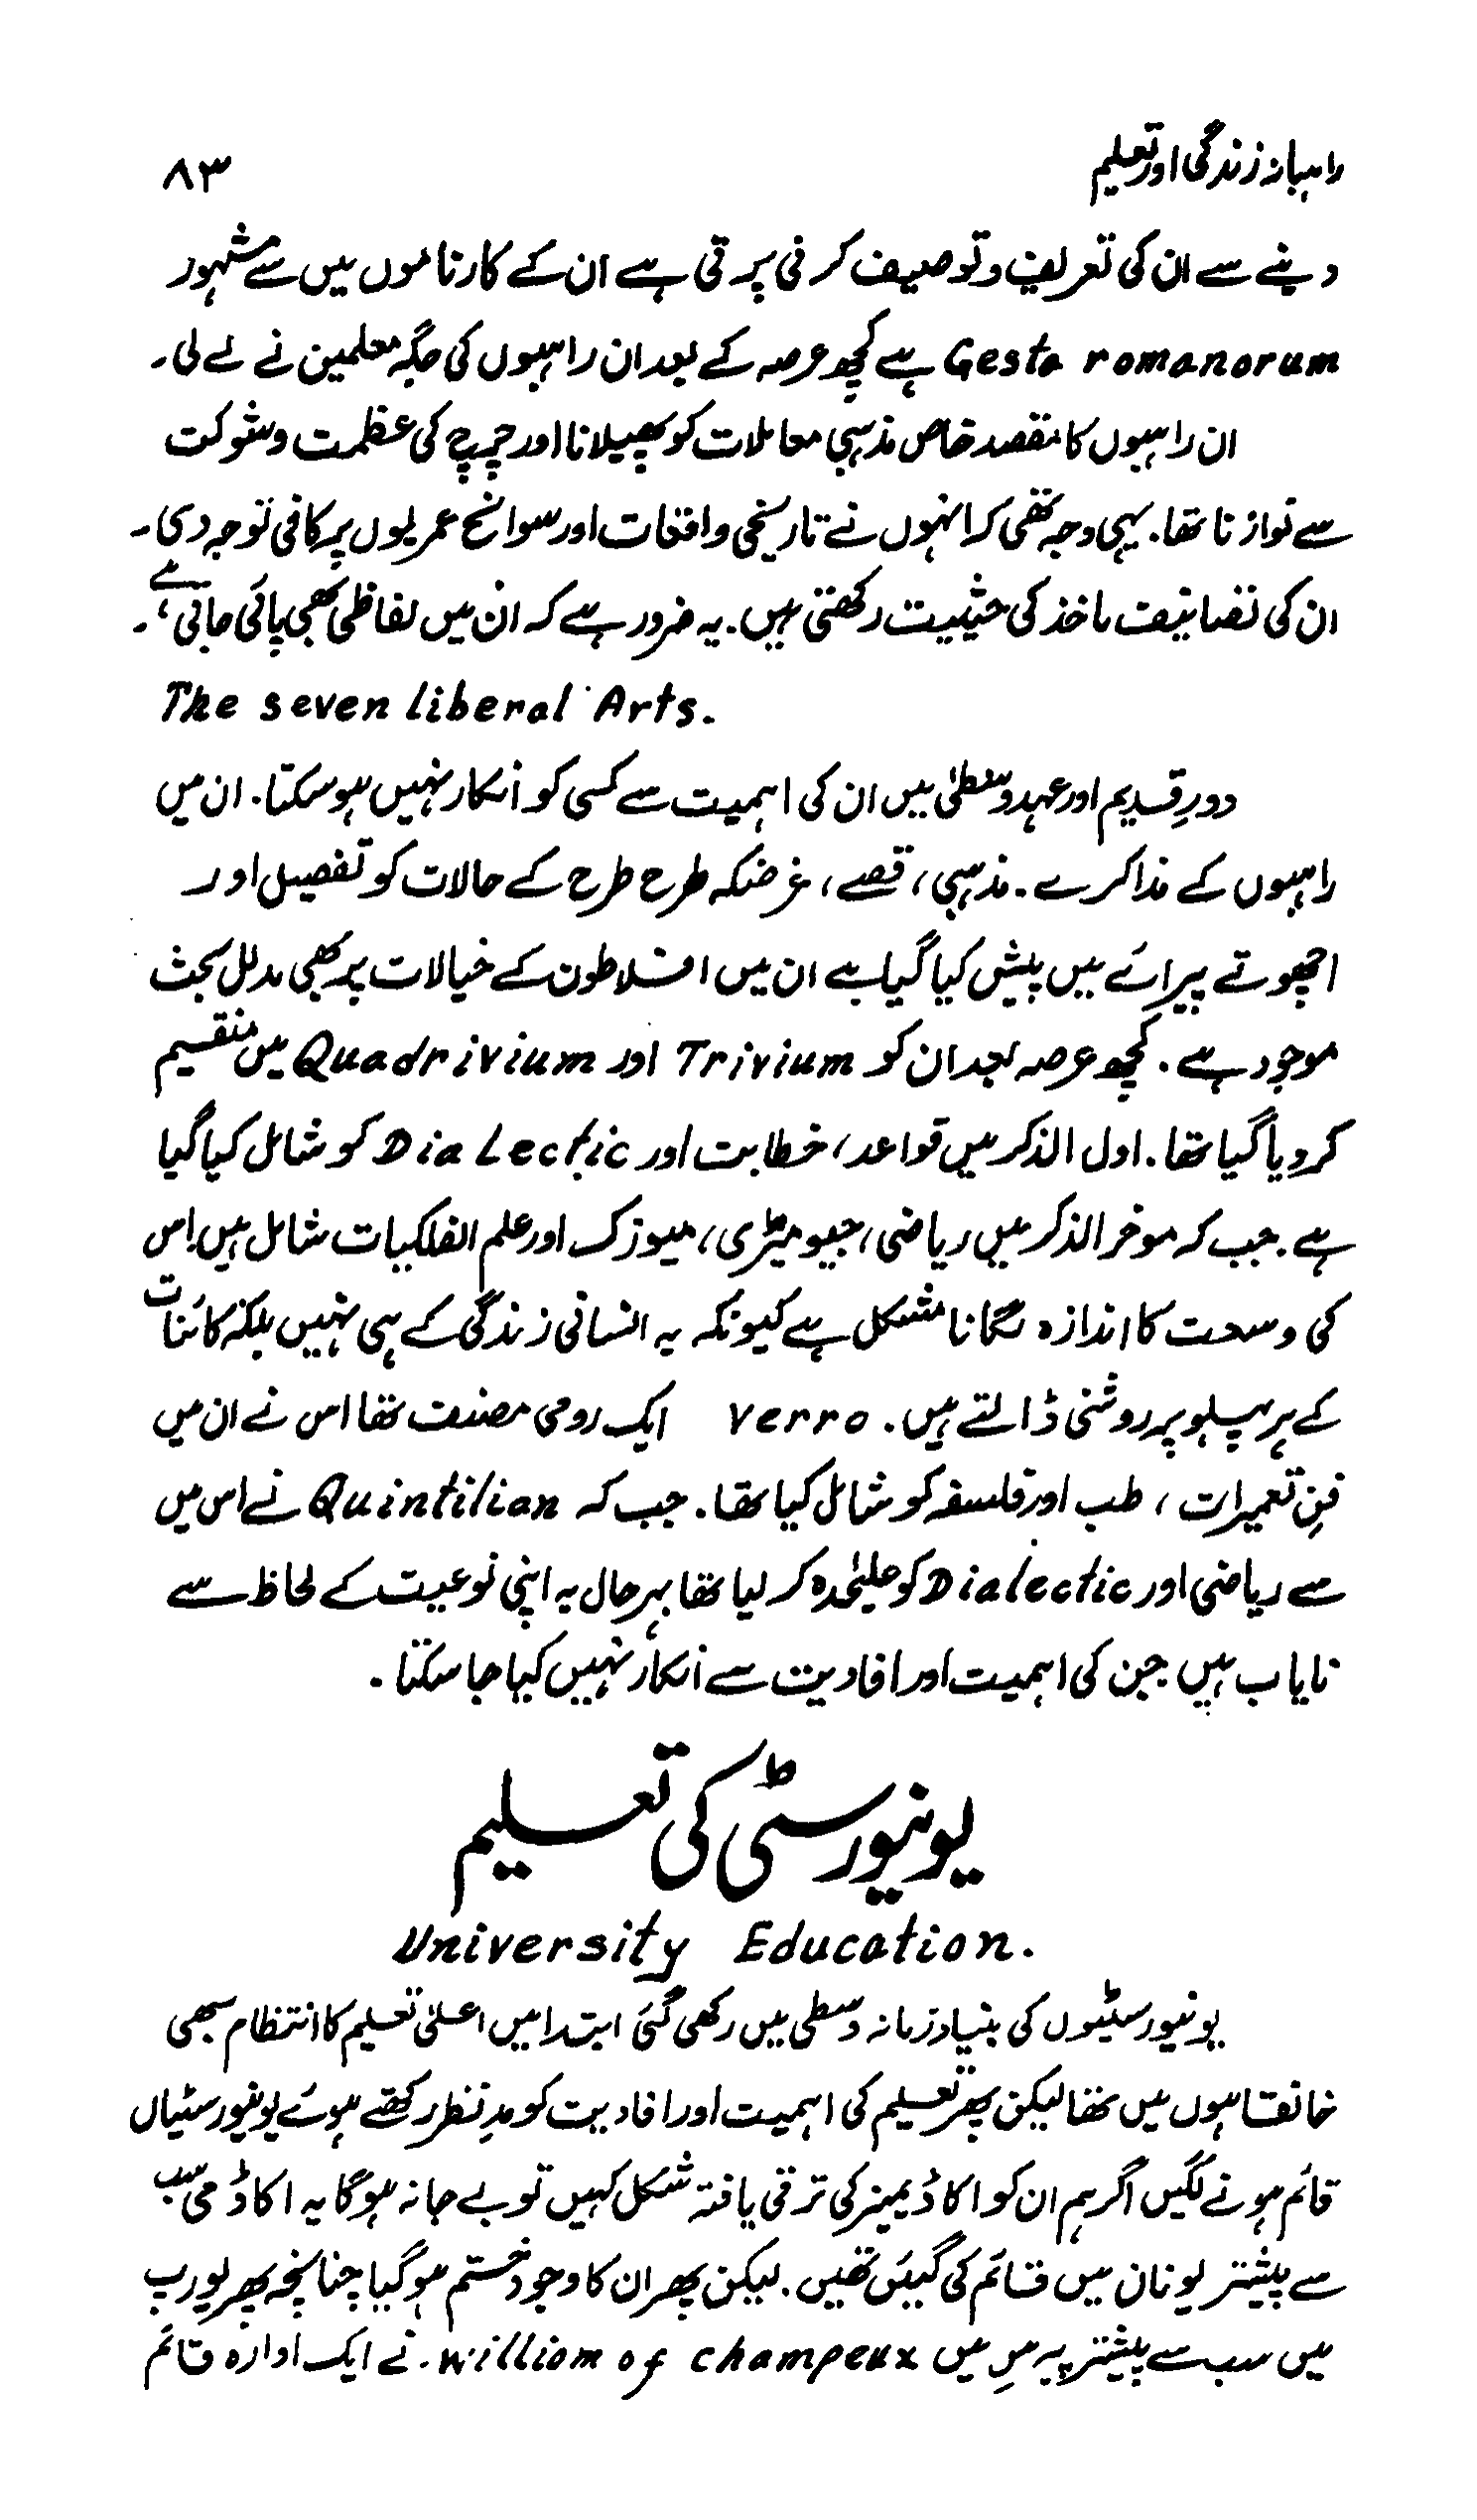 راہبانہ زندگی اور تعلیم ۸۳
دینے سے ان کی تعریف و توصیف کرنی پرتی ہے ان کے کارناموں میں سے مشہور
Gesta romanorum ہے کچھ عرصہ کے بعد ان راہبوں کی جگہ معلمین نے لے لی۔
ان راہبوں کا مقصد خاص مذہبی معاملات کو پھیلانا اور چرچ کی عظمت و شوکت
سے نوازنا تھا۔ یہی وجہ تھی کہ انہوں نے تاریخی واقعات اور سوانح عمریوں پر کافی توجہ دی۔
ان کی تصانیف ماخذ کی حیثیت رکھتی ہیں۔ یہ ضرور ہے کہ ان میں لفاظی بھی پائی جاتی ہے۔
The seven liberal Arts.
دورِ قدیم اور عہد وسطیٰ میں ان کی اہمیت سے کسی کو انکار نہیں ہو سکتا۔ ان میں
راہبوں کے مذاکرے۔ مذہبی، قصے، غرضکہ طرح طرح کے حالات کو تفصیل اور
اچھوتے پیرائے میں پیش کیا گیا ہے ان میں افلاطون کے خیالات پر بھی مدلل بحث
موجود ہے۔ کچھ عرصہ بعد ان کو Trivium اور Quadrivium میں منقسیم
کر دیا گیا تھا۔ اول الذکر میں قواعد، خطابت اور Dialectic کو شامل کیا گیا
ہے۔ جب کہ موخر الذکر میں ریاضی، جیومیٹری، میوزک اور علم الفلکیات شامل ہیں اس
کی وسعت کا اندازہ لگانا مشکل ہے کیونکہ یہ انسانی زندگی کے ہی نہیں بلکہ کائنات
کے ہر پہلو پر روشنی ڈالتے ہیں۔ Verro ایک رومی مصنف تھا اس نے ان میں
فنِ تعمیرات، طب اور فلسفہ کو شامل کیا تھا۔ جب کہ Quintilian نے اس میں
سے ریاضی اور Dialectic کو علیٰحدہ کر لیا تھا بہر حال یہ اپنی نوعیت کے لحاظ سے
نایاب ہیں جن کی اہمیت اور افادیت سے انکار نہیں کیا جا سکتا۔
یونیورسٹی کی تعلیم
University Education.
یونیورسٹیوں کی بنیاد زمانہ وسطی میں رکھی گئی ابتدا میں اعلیٰ تعلیم کا انتظام بھی
خانقاہوں میں تھا لیکن پھر تعلیم کی اہمیت اور افادیت کو مدِ نظر رکھتے ہوئے یونیورسٹیاں
قائم ہونے لگیں اگر ہم ان کو اکاڈیمیز کی ترقی یافتہ شکل کہیں تو بے جا نہ ہوگا یہ اکاڈمی سب
سے پیشتر یونان میں قائم کی گیئں تھیں۔ لیکن پھر ان کا وجود ختم ہو گیا چنانچہ پھر یورپ
میں سب سے پیشتر پیرس میں William of champeux نے ایک ادارہ قائم